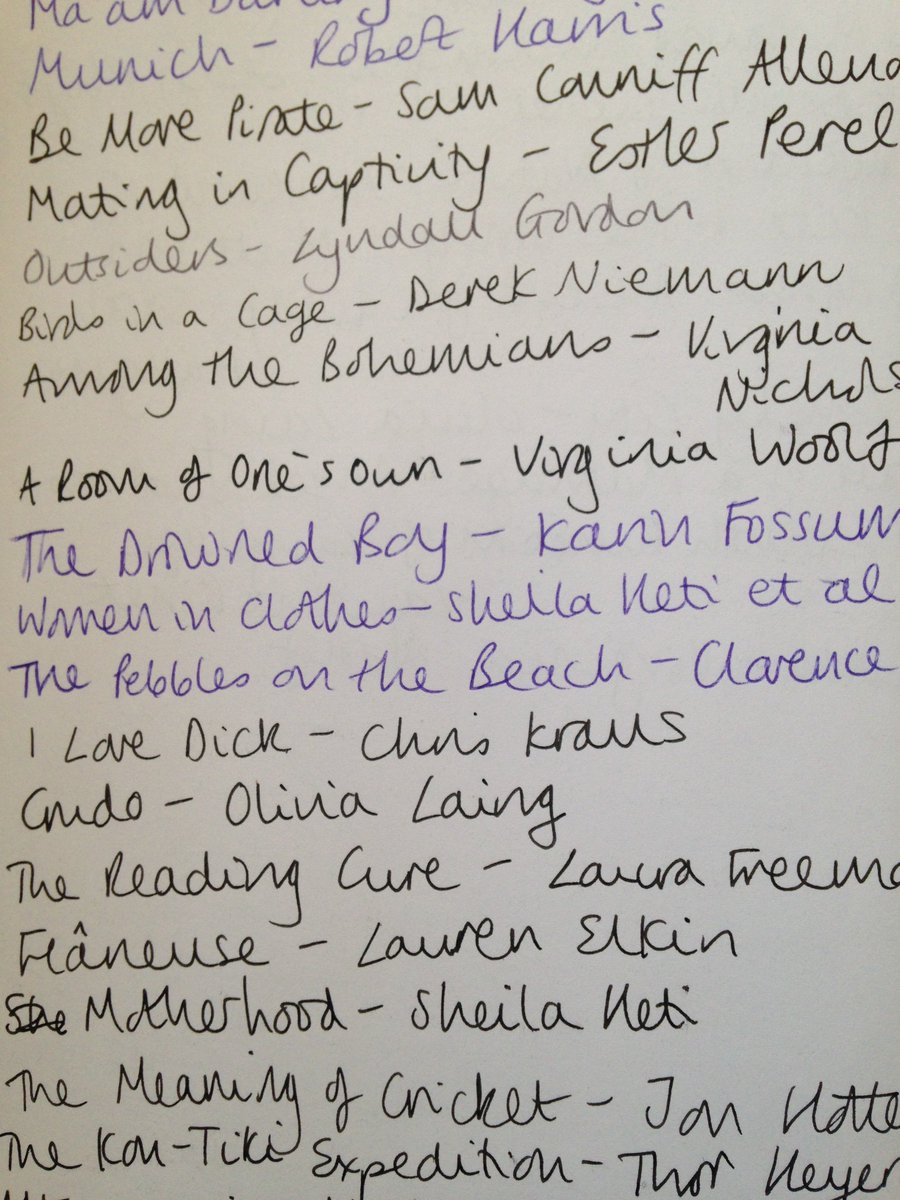 Ma'am Darling
Munich - Robert Harris
Be More Pirate - Sam Conniff Allend
Mating in Captivity - Esther Perel
Outsiders - Lyndall Gordon
Birds in a Cage - Derek Niemann
Among the Bohemians - Virginia
Nichols
A Room of One's Own - Virginia Woolf
The Drowned Boy - Karin Fossum
Women in Clothes - Sheila Heti et al
The Pebbles on the Beach - Clarence
I Love Dick - Chris Kraus
Crudo - Olivia Laing
The Reading Cure - Laura Freema
Flâneuse - Lauren Elkin
She Motherhood - Sheila Heti
The Meaning of Cricket - Jon Hotte
The Kon-Tiki Expedition - Thor Heyer